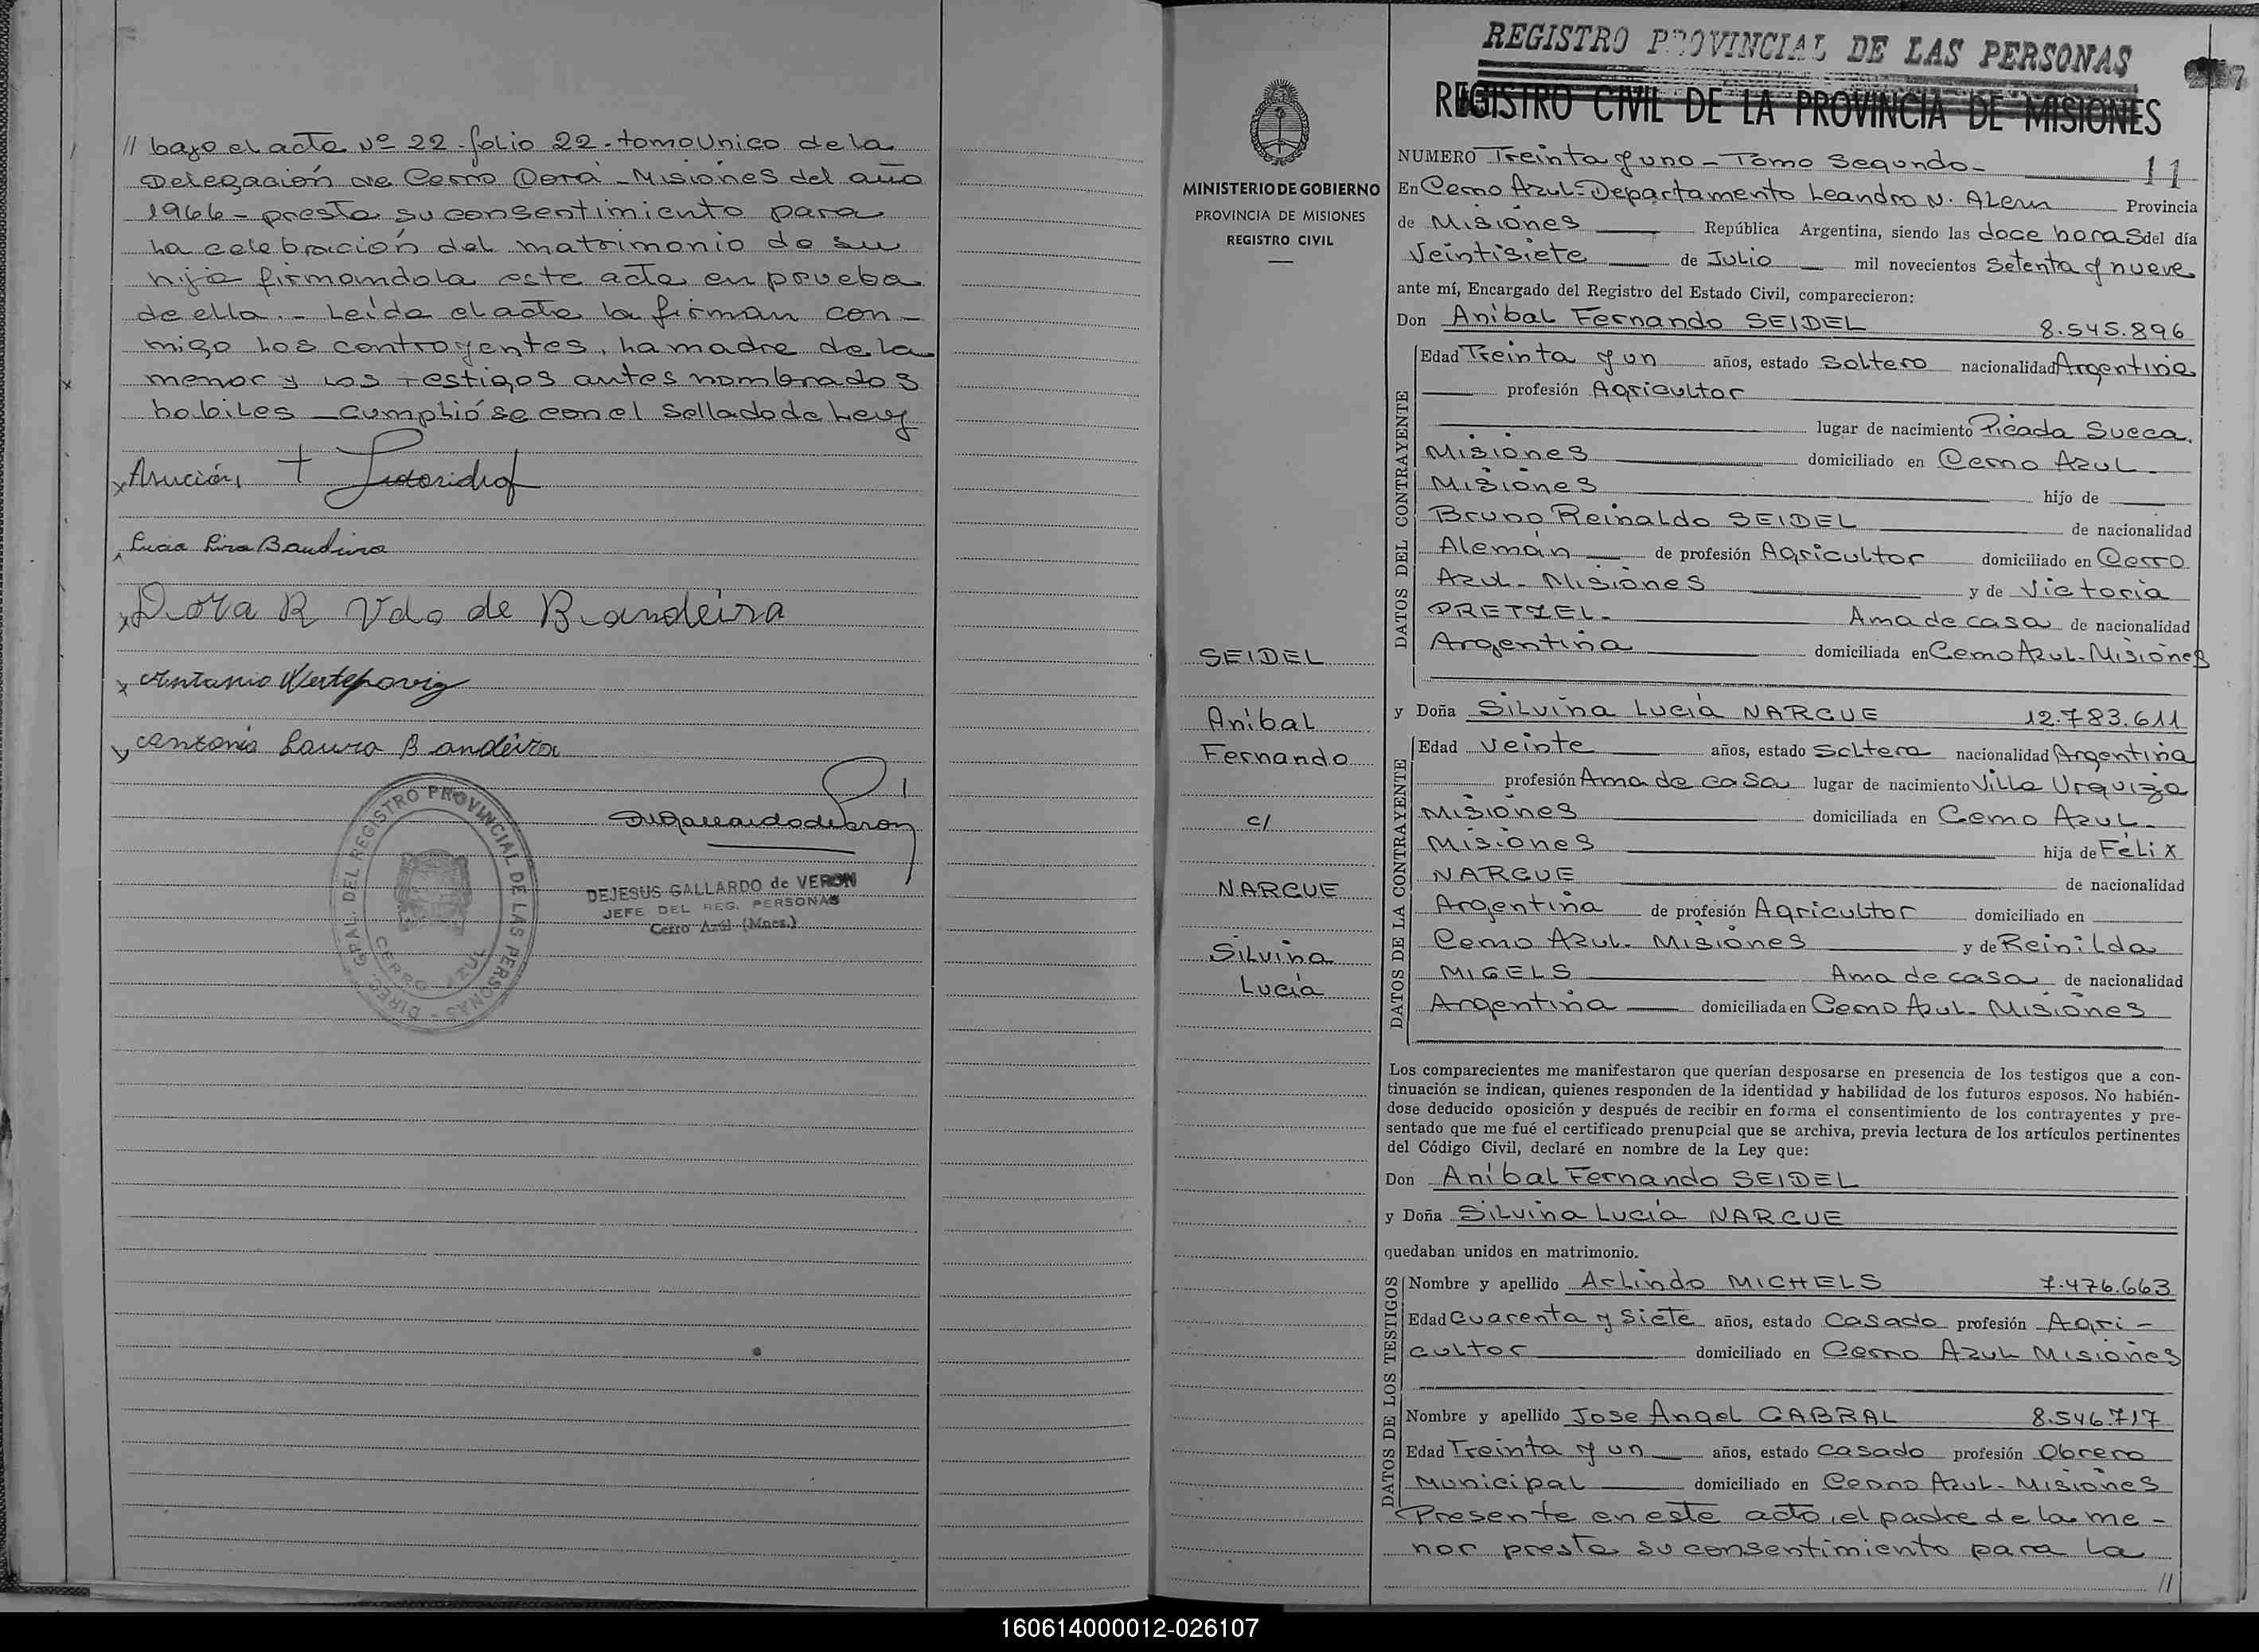 // bajo el acta Nº 22 - folio 22 - tomo Unico de la
Delegación de Cerro Corá - Misiones del año
1966 - presta su consentimiento para
la celebración del matrimonio de su
hija firmandola este acta en prueba
de ella. - Leída el acta la firman con-
migo los contrayentes, la madre de la
menor y los testigos antes nombrados
habiles - cumplióse con el sellado de Ley
x Asunción, +
Lucia Lira Bandeira
x Dora R Vda de Bandeira
x Antonio
x Antonia Laura Bandeira
DEJESUS GALLARDO de VERON
JEFE DEL REG. PERSONAS
Cerro Azul (Mnes.)
DIREC. GRAL. DEL REGISTRO PROVINCIAL DE LAS PERSONAS -
CERRO AZUL
MINISTERIO DE GOBIERNO
PROVINCIA DE MISIONES
REGISTRO CIVIL
SEIDEL
Aníbal
Fernando
c/
NARCUE
Silvina
Lucía
REGISTRO PROVINCIAL DE LAS PERSONAS
REGISTRO CIVIL DE LA PROVINCIA DE MISIONES
NUMERO Treinta y uno - Tomo Segundo - 11
En Cerro Azul - Departamento Leandro N. Alem Provincia
de Misiones República Argentina, siendo las doce horas del día
Veintisiete de Julio mil novecientos Setenta y nueve
ante mí, Encargado del Registro del Estado Civil, comparecieron:
Don Aníbal Fernando SEIDEL 8.545.896
DATOS DEL CONTRAYENTE
Edad Treinta y un años, estado Soltero nacionalidad Argentina
profesión Agricultor
lugar de nacimiento Picada Sueca.
Misiones domiciliado en Cerro Azul -
Misiones hijo de
Bruno Reinaldo SEIDEL de nacionalidad
Alemán de profesión Agricultor domiciliado en Cerro
Azul - Misiones y de Victoria
PRETZEL - Ama de casa de nacionalidad
Argentina domiciliada en Cerro Azul - Misiones
y Doña Silvina Lucía NARCUE 12.783.611
DATOS DE LA CONTRAYENTE
Edad Veinte años, estado Soltera nacionalidad Argentina
profesión Ama de casa lugar de nacimiento Villa Urquiza
Misiones domiciliada en Cerro Azul -
Misiones hija de Félix
NARCUE de nacionalidad
Argentina de profesión Agricultor domiciliado en
Cerro Azul - Misiones y de Reinilda
MIGELS Ama de casa de nacionalidad
Argentina domiciliada en Cerro Azul - Misiones
Los comparecientes me manifestaron que querían desposarse en presencia de los testigos que a con-
tinuación se indican, quienes responden de la identidad y habilidad de los futuros esposos. No habién-
dose deducido oposición y después de recibir en forma el consentimiento de los contrayentes y pre-
sentado que me fué el certificado prenupcial que se archiva, previa lectura de los artículos pertinentes
del Código Civil, declaré en nombre de la Ley que:
Don Aníbal Fernando SEIDEL
y Doña Silvina Lucía NARCUE
quedaban unidos en matrimonio.
DATOS DE LOS TESTIGOS
Nombre y apellido Arlindo MICHELS 7.476.663
Edad Cuarenta y Siete años, estado Casado profesión Agri-
cultor domiciliado en Cerro Azul Misiones
Nombre y apellido Jose Angel CABRAL 8.546.717
Edad Treinta y un años, estado Casado profesión Obrero
Municipal domiciliado en Cerro Azul - Misiones
Presente en este acto, el padre de la me-
nor presta su consentimiento para la
//
160614000012-026107